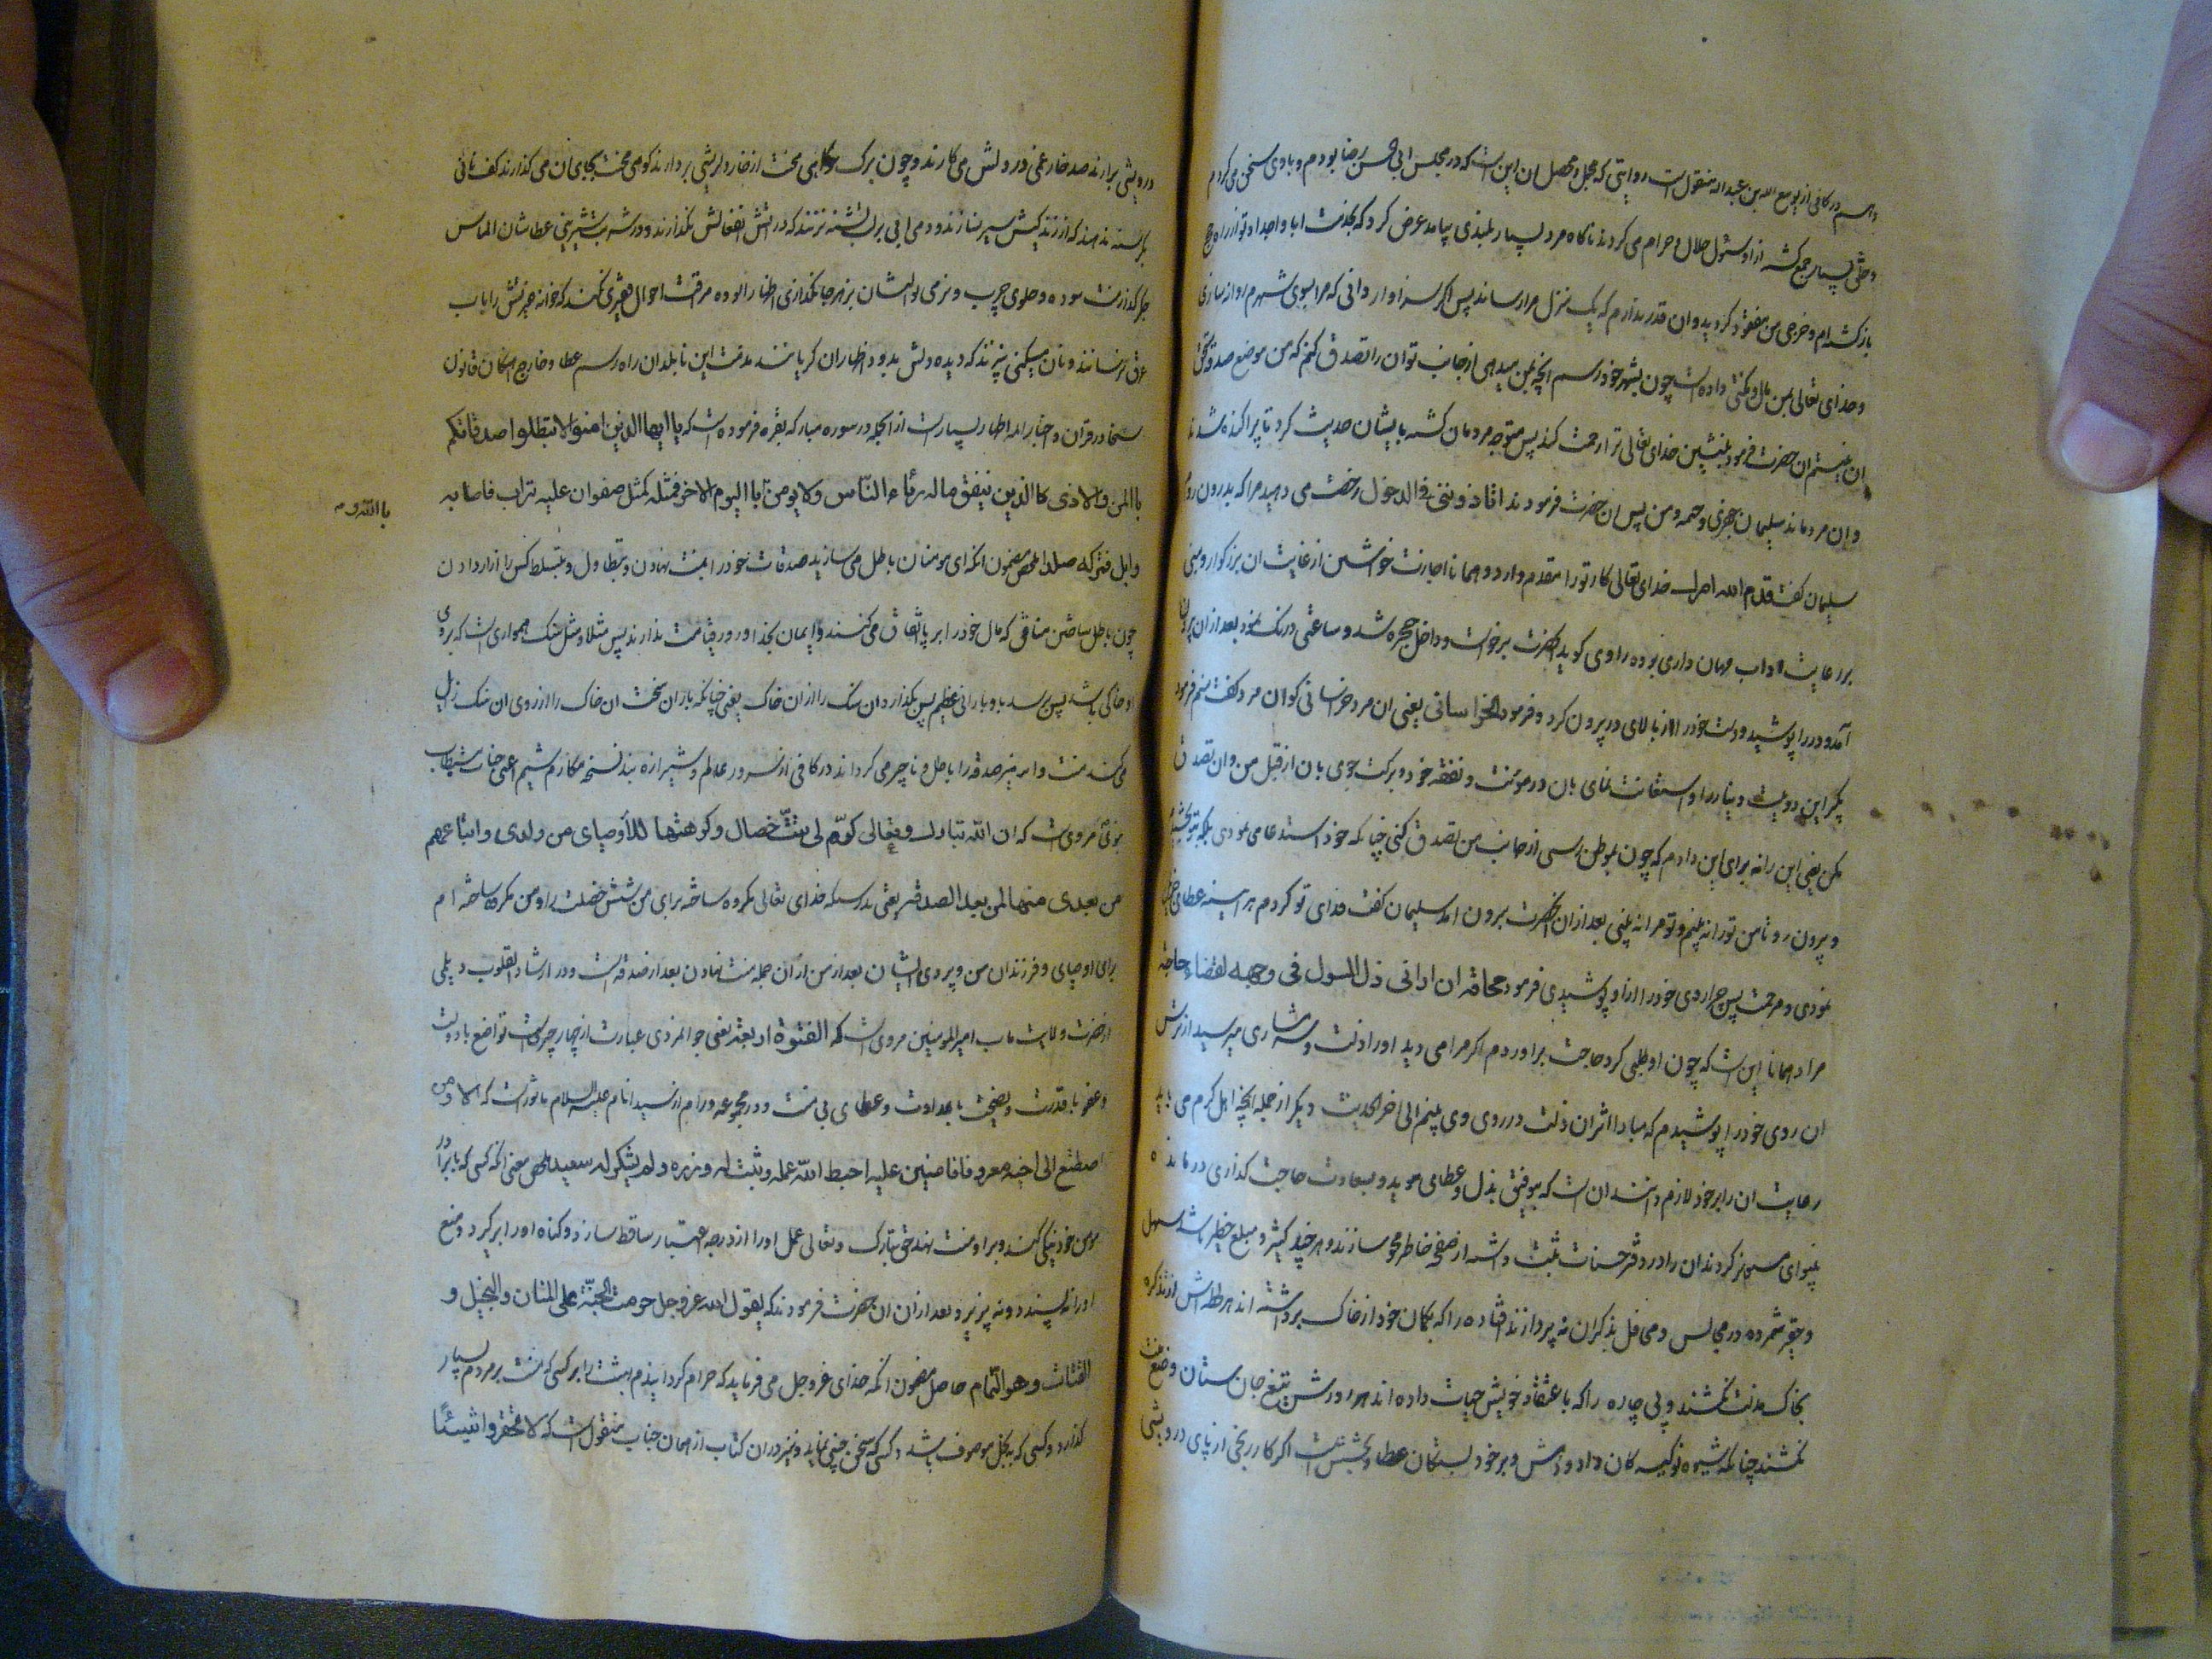 و هم در کافی از یسع بن عبدالله منقول است روایتی که مجمل و محصل ان این است که در مجلس ابی الحسن رضا بودم و با وی سخن می کردم
و خلقی بسیار جمع کشته از او سئول حلال و حرام می کردند ناکاه مرد بسیار بلندی بیامد عرض کرد که بخدمت ابا و اجداد تو از راه حج
باز کشته ام و خرجی من مفقود کردید و ان قدر ندارم که یک منزل مرا رساند پس اکر سزاوار دانی که مرا بسوی شهرم روانه سازی
و خدای تعالی بمن مال و مکنتی داده است چون بشهر خود رسم انچه بمن میدهی از جانب تو ان را تصدق کنم که من موضع صدقه
ان نیستم ان حضرت فرمود بنشین خدای تعالی ترا رحمت کند پس متوجه مردمان کشته با یشان حدیث کرد تا پراکنده شدند
و ان مرد ماند سلیمان جعفری و خیثمه و من پس ان حضرت فرمودند اتاذنوننی فی الدخول رخصت می دهید مرا که بدرون روم
سلیمان کفت قدم الله امرک خدای تعالی کار تو را مقدم دارد و همانا اجازت خواستن از غایت ان بزرکوار مبنی
بر رعایت اداب مهمان داری بوده راوی کوید انحضرت برخواست و داخل حجره شد و ساعتی درنک نمود بعد از ان بیرون
آمد و در را پوشید و دست خود را از بالای در بیرون کرد و فرمود این الخراسانی یعنی ان مرد خراسانی کو ان مرد کفت منم فرمود
بکیر این دویست دینار را و استعانت نمای بان در مونت و نفقه خود و برکت جوی بان از قبل من و ان تصدق
مکن یعنی این را نه برای این دادم که چون بوطن رسی از جانب من تصدق کنی چنانکه خود استدعا می نمودی بلکه بتو بخشیدم
و بیرون رو تا من تو را نه بینم و تو مرا نه بینی بعد از ان انحضرت بیرون امد سلیمان کفت فدای تو کردم هر اینه عطای
نمودی و مرحمت پس چرا روی خود را از او پوشیدی فرمود مخافة ان ارانی ذل السول فی وجهه لقضاء حاجته
مراد همانا این است که چون او طلبی کرد حاجت براوردم اکر مرا می دید او را ذلت و شرمساری میرسید از ترس
ان روی خود را پوشیدم که مبادا اثر ان ذلت در روی وی بینم الی اخر الحدیث دیکر از جمله انچه اهل کرم می باید
رعایت ان را بر خود لازم دانند ان است که بتوفیق بذل و عطای موید و بسعادت حاجت کذاری درمانده
بینوای مستسعد کردند ان را در دفتر حسنات ثبت داشته از صفحه خاطر محو سازند و هر چند کثیر و مبلغ خطیر باشد سهل
و حقیر شمرده در مجالس و محافل بذکر ان نه پردازند افتاده را که بکمان خود از خاک برداشته اند هر لحظه اش از تذکره
بخاک مذلت نکشند و بی چاره را که باعتقاد خویش حیات داده اند هر دم ورش بتیغ جان ستان وضع منت
نکشند چنانکه شیوه نوکیسه کان داد و دهش و بر خود بستکان عطا و بخشش است اکر خاری از پای درویشی
درویشی برارند صد خار غمی در دلش می کارند و چون برک کاهی محنت از خار دلریشی بردارند کوهی محنت بجای ان می کذارند کف نانی
بکرسنه ندهند که از زندکیش سیر نسازند و دمی ابی بر لب تشنه نریزند که در اتش انفعالش نکذارند و در شربت شیرینی عطاشان الماس
جکر کداز منت سوده و حلوی چرب و نرمی نوالشان بزهر جانکدازی اظهار الوده مرقت احوال فقیری نکنند که خوانه چیزش را باب
عرق نرسانند و نان مسکینی نپزند که دیده دلش بدود اظهار ان کریان نشود مذمت این نابلدان راه رسم عطا و خارج اهنکان قانون
سخا در قران و اخبار ائمه اطهار بسیار است از انجمله در سوره مبارکه بقره فرموده است که یا ایها الذین امنوا لا تبطلوا صدقاتکم
بالمن والاذی کالذین ینفق ماله رئاء الناس ولا یومن باالیوم الاخر فمثله کمثل صفوان علیه تراب فاصابه
باالله و م
وابل فترکه صلدا ملخص مضمون انکه ای مومنان باطل می سازید صدقات خود را بمنت نهادن و بتطاول و بتسلط کس را ازار دادن
چون باطل ساختن منافقی که مال خود را بریا انفاق می کنند و ایمان بخدا و روز قیامت ندارند پس مثل او مثل سنک همواری است که بر روی
او خاکی باشد پس برسد باو بارانی عظیم پس بکذارد ان سنک را از ان خاک یعنی چنانکه باران سخت ان خاک را از روی ان سنک زایل
می کند منت و ایذا نیز صدقه را باطل و ناچیز می کرداند در کافی از سرور عالم و شیرازه بند نسخه مکارم شیم اعنی جناب مستطاب
نبوی مروی است که ان الله تبارک و تعالی کره لی ست خصال و کرهتها للاوصیای من ولدی و اتباعهم
من بعدی منها المن بعد الصدقه یعنی بدرستیکه خدای تعالی مکروه ساخته برای من شش خصلت را و من مکروه ساخته ام
برای اوصیای و فرزندان من و پیروی ایشان بعد از من از ان جمله منت نهادن بعد از صدقه است و در ارشاد القلوب دیلمی
از حضرت ولایت ماب امیرالمومنین مروی است که الفتوة اربعة یعنی جوانمردی عبارت از چهار چیز است تواضع با دولت
و عفو با قدرت و نصیحت با عداوت و عطای بی منت و در مجموعه ورام از سید انام علیه السلام ماثور است که الا و من
اصطنع الی اخیه معروفا فامتن علیه احبط الله عمله و ثبت له وزره ولم یشکر له سعیه ملخص معنی انکه کسی که با برادر
مومن خود نیکی کند و بر او منت نهد حق تبارک و تعالی عمل او را از درجه اعتبار ساقط سازد و کناه او را بر کیرد و صنع
او را نه پسندد و نه پزیرد و بعد از ان ان حضرت فرمودند که یقول الله عز و جل حرمت الجنة علی المنان والبخیل و
القتات و هو النمام حاصل مضمون انکه خدای عز و جل می فرماید که حرام کردانیدم بهشت را بر کسی که منت بر مردم بسیار
کذارد و کسی که ببخل موصوف باشد و کسی که سخن چینی نماید و نیز در ان کتاب از همان جناب منقول است که لا تحقروا شیئا